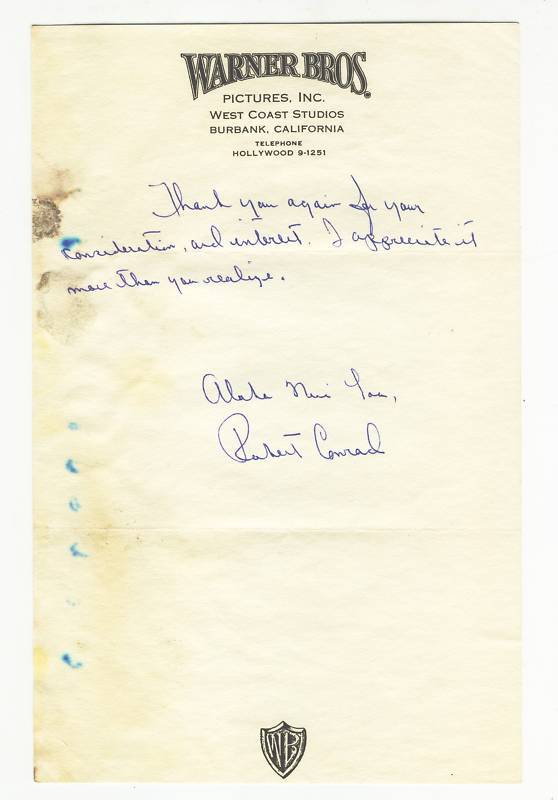 WARNER BROS.
PICTURES, INC.
WEST COAST STUDIOS
BURBANK, CALIFORNIA
TELEPHONE
HOLLYWOOD 9-1251
Thank you again for your
consideration, and interest. I appreciate it
more than you realize.
Aloha Nui Loa,
Robert Conrad
WB